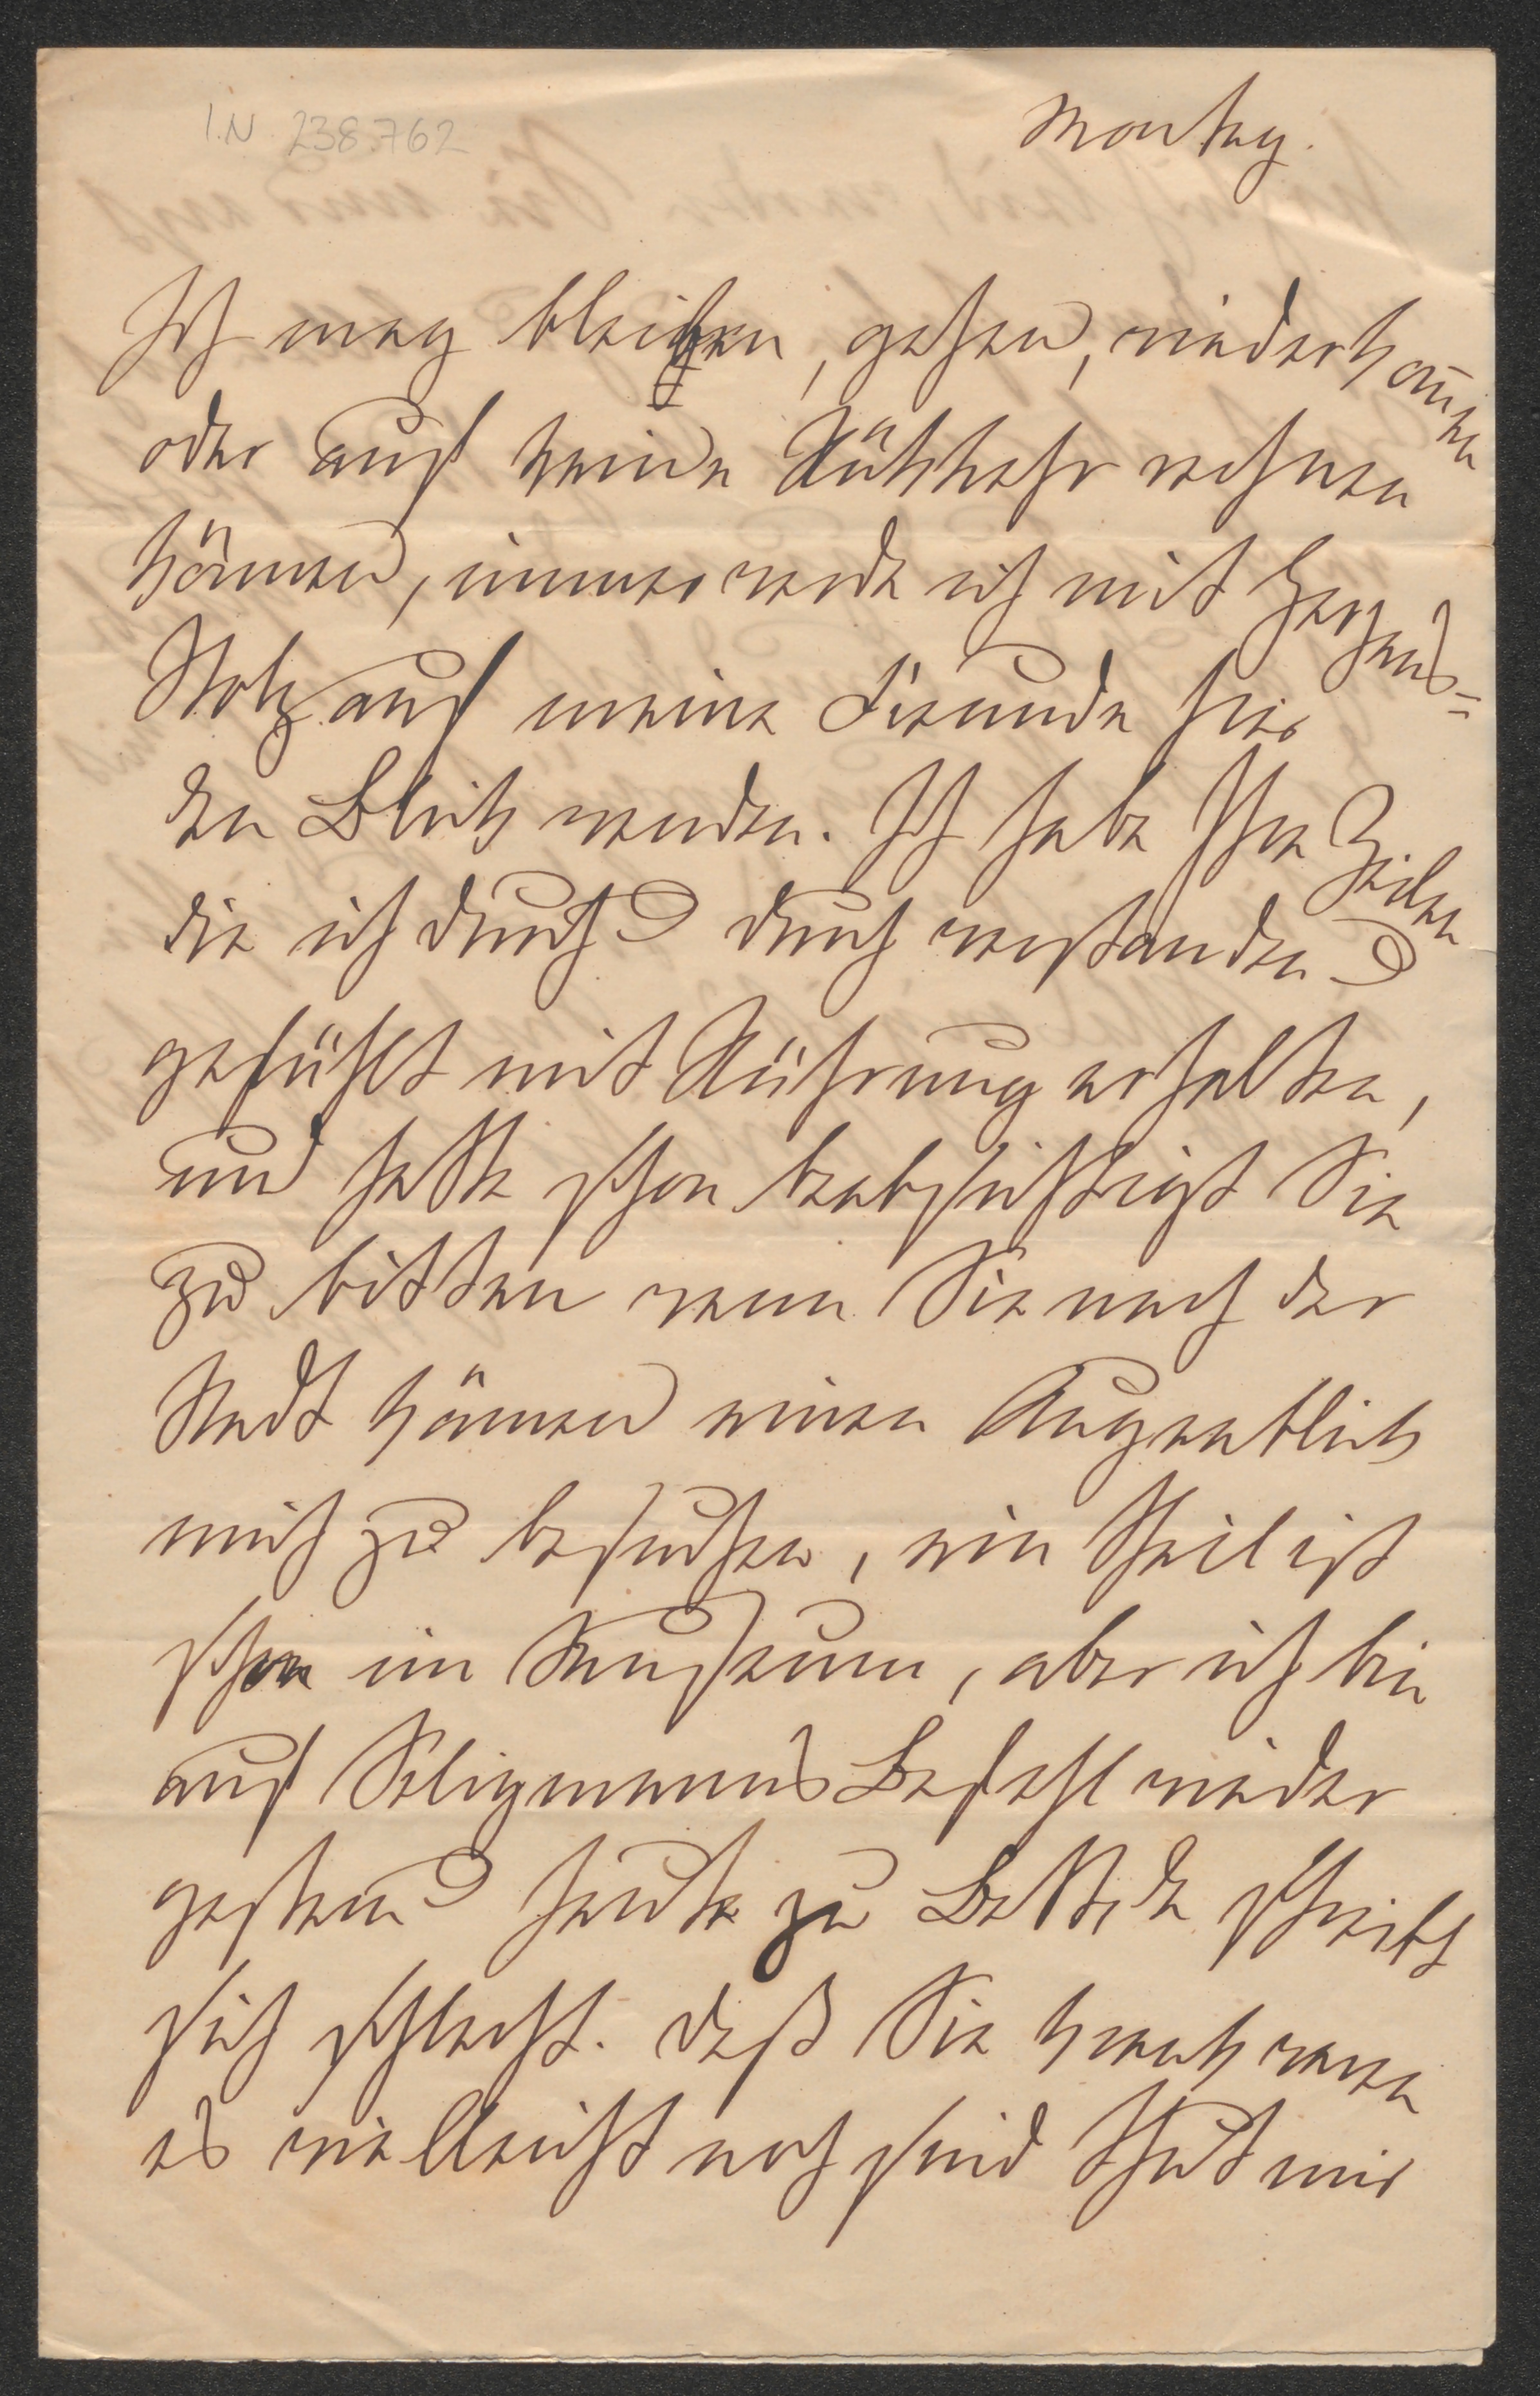 I.N. 238.762
Montag.
Ich mag bleiben, gehen, wiederkom̅en
oder auf keine Rükkehr rechnen
können, immer werde ich mit Herzens=
Stolz auf meine Freunde hier
den Blick wenden. Ich habe Ihre Zeilen
die ich durch u durch verstanden u
gefühlt mit Rührung erhalten,
und hatte schon beabsichtigt Sie
zu bitten wenn Sie nach der
Stadt können einen Augenblick
mich zu besuchen, ein Theil ist
schon im Museum, aber ich bin
auf Seligmanns Befehl wieder
gestern u heute zu Bette die schreibt
sich schlecht. Daß Sie krank waren
es vielleicht noch sind thut mir